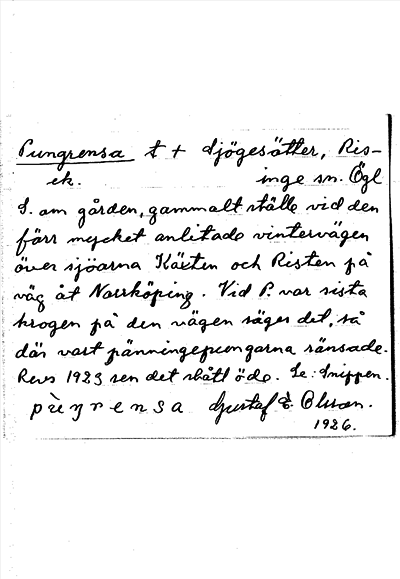 Pungrensa t + Sjögesätter, Ris-
ek. inge sn. Ögl
S. om gården, gammalt ställe vid den
förr mycket anlitade vintervägen
över sjöarna Kärten och Risten på
väg åt Norrköping. Vid P. var sista
krogen på den vägen säges det, så
där vart pänningepungarna ränsade.
Revs 1923 sen det stått öde. Se: Snippen.
pùŋrensa Gustaf E. Olsson.
1926.